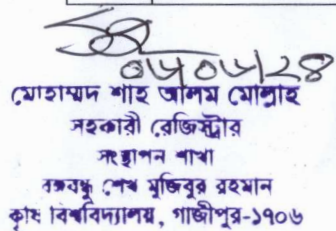 ০৬/০৬/২৪
মোহাম্মদ শাহ আলম মোল্লাহ
সহকারী রেজিস্ট্রার
সংস্থাপন শাখা
বঙ্গবন্ধু শেখ মুজিবুর রহমান
কৃষি বিশ্ববিদ্যালয়, গাজীপুর-১৭০৬